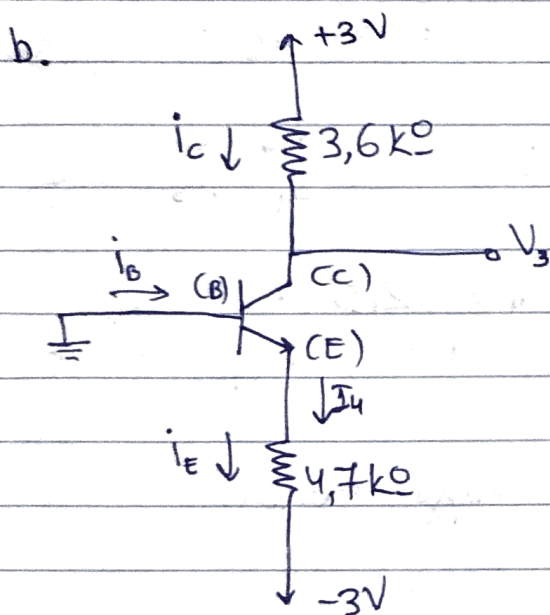 b.
+3V
iC ↓ 3,6kΩ
V3
iB →
(B) (C)
(E)
↓ I4
iE ↓ 4,7kΩ
-3V